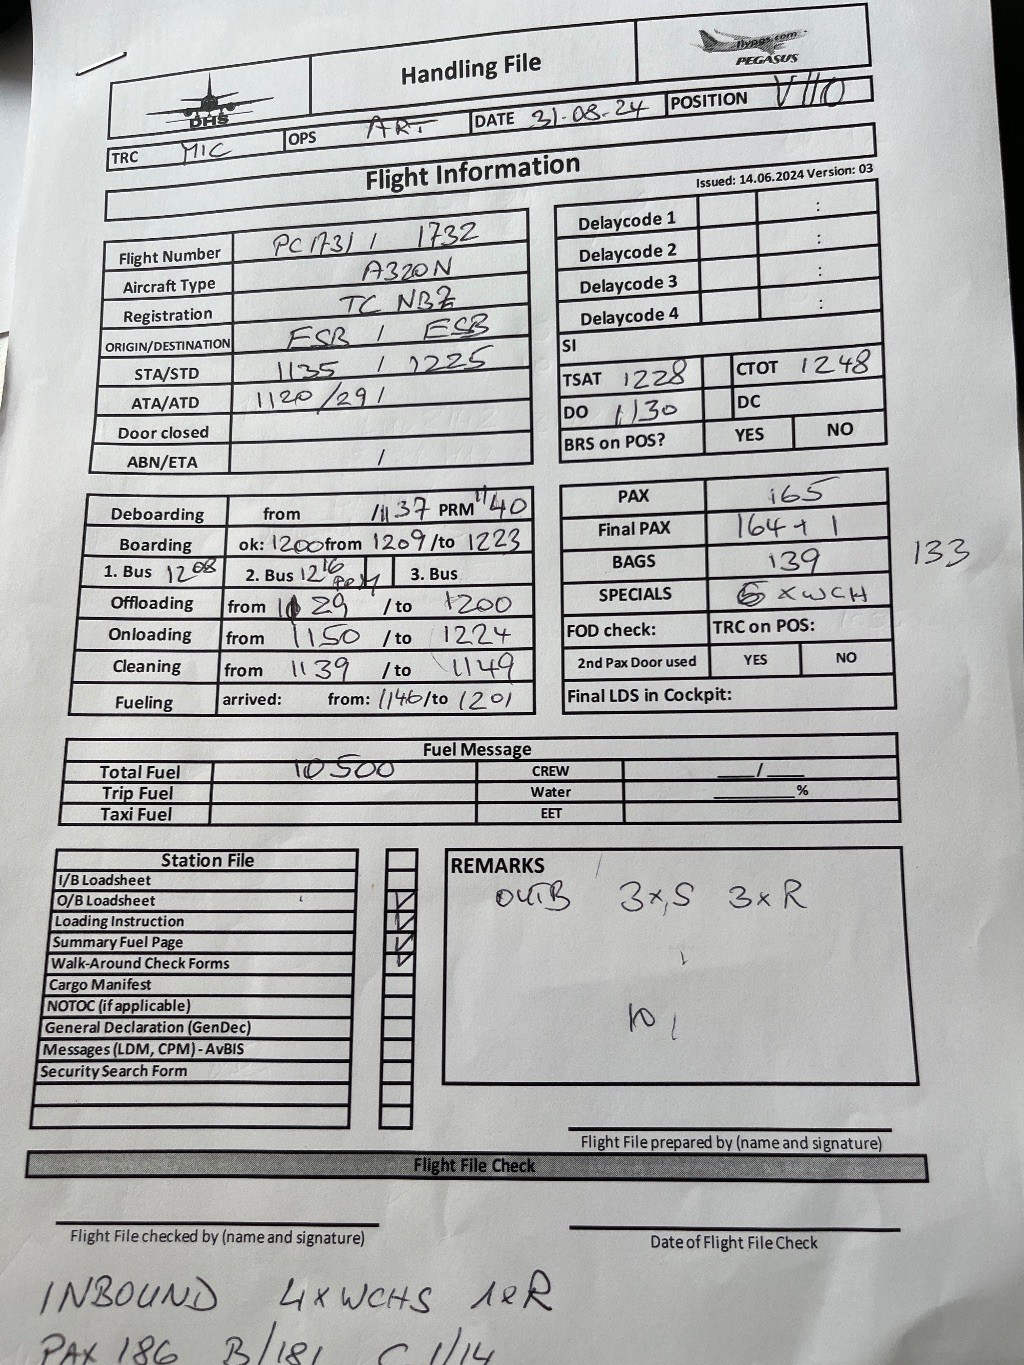 Handling File
flypgs.com
PEGASUS
DHS
TRC MIC OPS ART DATE 31-08-24 POSITION V110
Flight Information
Issued: 14.06.2024 Version: 03
Flight Number PC1731 / 1732
Aircraft Type A320N
Registration TC NBZ
ORIGIN/DESTINATION ESB / ESB
STA/STD 1135 / 1225
ATA/ATD 1120/29 /
Door closed
ABN/ETA /
Delaycode 1 :
Delaycode 2 :
Delaycode 3 :
Delaycode 4 :
SI
TSAT 1228 CTOT 1248
DO 1130 DC
BRS on POS? YES NO
Deboarding from /1137 PRM 1140
Boarding ok: 1200 from 1209 /to 1223
1. Bus 1208 2. Bus 1216 3. Bus
Offloading from 1129 /to 1200
Onloading from 1150 /to 1224
Cleaning from 1139 /to 1149
Fueling arrived: from: 1146 /to 1201
PAX 165
Final PAX 164 + 1
BAGS 139 133
SPECIALS 6 x WCH
FOD check: TRC on POS:
2nd Pax Door used YES NO
Final LDS in Cockpit:
Fuel Message
Total Fuel 10500 CREW ___/___
Trip Fuel Water ______%
Taxi Fuel EET
Station File
I/B Loadsheet
O/B Loadsheet
Loading Instruction
Summary Fuel Page
Walk-Around Check Forms
Cargo Manifest
NOTOC (if applicable)
General Declaration (GenDec)
Messages (LDM, CPM) - AvBIS
Security Search Form
REMARKS
OUTB 3x S 3x R
10
Flight File prepared by (name and signature)
Flight File Check
Flight File checked by (name and signature)
Date of Flight File Check
INBOUND 4 x WCHS 1x R
PAX 186 B/181 C 1/14